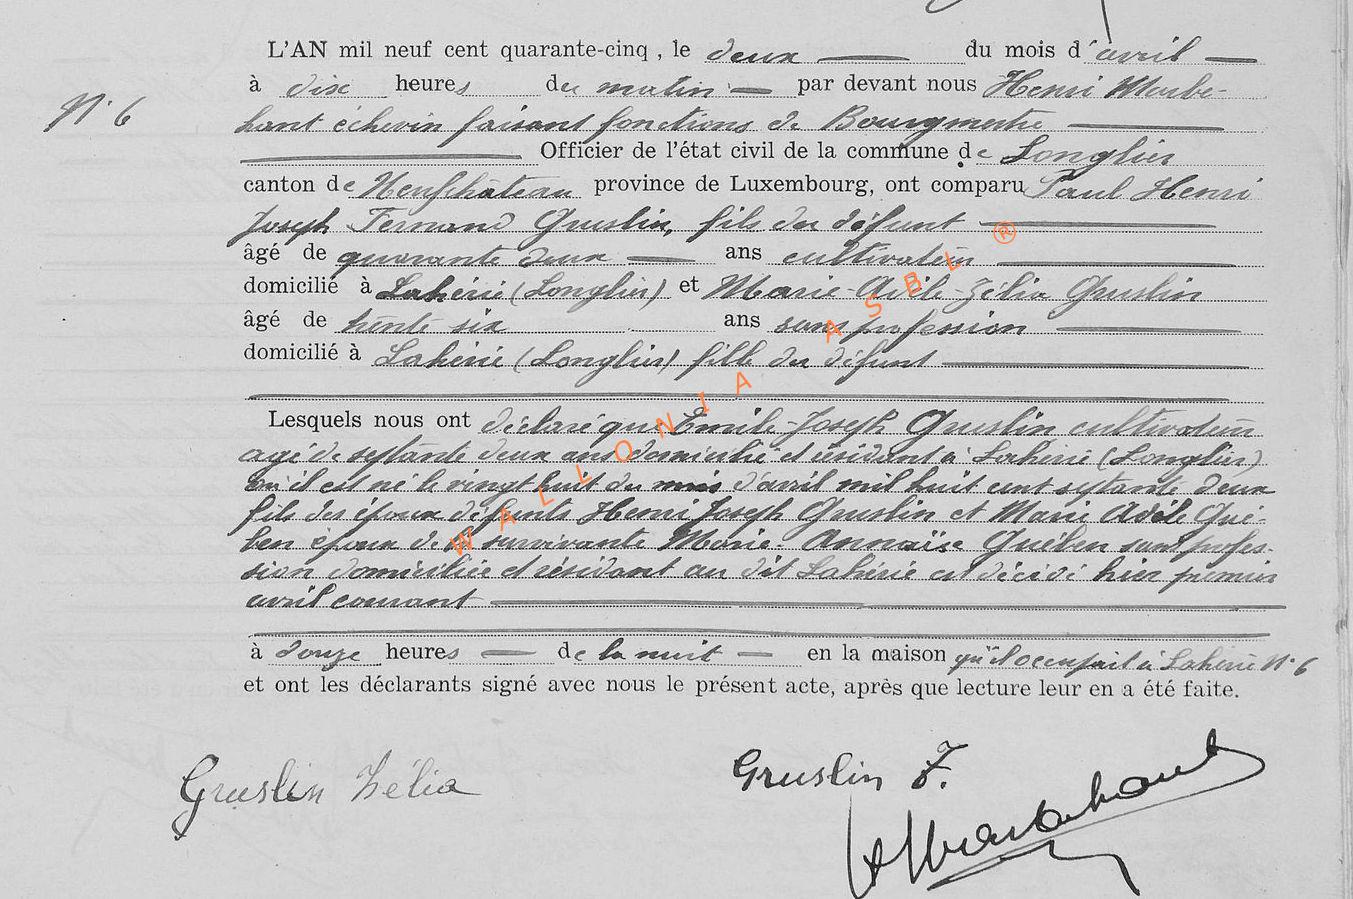 L'AN mil neuf cent quarante-cinq, le deux du mois d'avril
à dix heures du matin par devant nous Henri Marbe-
hant échevin faisant fonctions de Bourgmestre
Officier de l'état civil de la commune de Longlier
N° 6
canton de Neufchâteau province de Luxembourg, ont comparu Paul Henri
Joseph Fernand Gruslin, fils du défunt
âgé de quarante deux ans cultivateur
domicilié à Lahérie (Longlier) et Marie-Adèle-Zélia Gruslin
âgé de trente six ans sans profession
domicilié à Lahérie (Longlier) fille du défunt
Lesquels nous ont déclaré que Emile-Joseph Gruslin cultivateur
agé de septante deux ans domicilié et résidant à Lahérie (Longlier)
où il est né le vingt huit du mois d'avril mil huit cent septante deux
fils des époux défunts Henri Joseph Gruslin et Marie Adèle Gué-
ben époux de la survivante Marie-Annaïse Guében sans profes-
sion domiciliée et résidant au dit Lahérie est décédé hier premier
avril courant
à douze heures de la nuit en la maison qu'il occupait à Lahérie N° 6
et ont les déclarants signé avec nous le présent acte, après que lecture leur en a été faite.
Gruslin Zélia
Gruslin F.
H Marbehant
WALLONIA ASBL ®